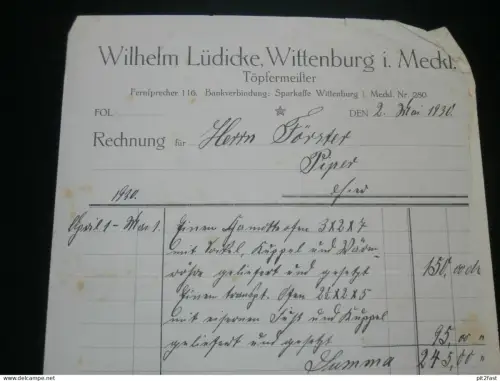 Wilhelm Lüdicke, Wittenburg i. Meckl.
Töpfermeister
Fernsprecher 116. Bankverbindung: Sparkasse Wittenburg i. Meckl. Nr. 280.
FOL.
DEN 2. Mai 1930.
Rechnung für Herrn Förster
Piper
hier
1930.
April 1 - Mai 1.
Einen Kamottofen 3x2x7
mit Sockel, Kuppel und Wärm-
röhre geliefert und gesetzt
150,00
Einen transpt. Ofen 2x2x5
mit eisernen Füß und Kuppel
95,00 "
geliefert und gesetzt
Summa 245,00 "
alle-antike.de
© pit2fast